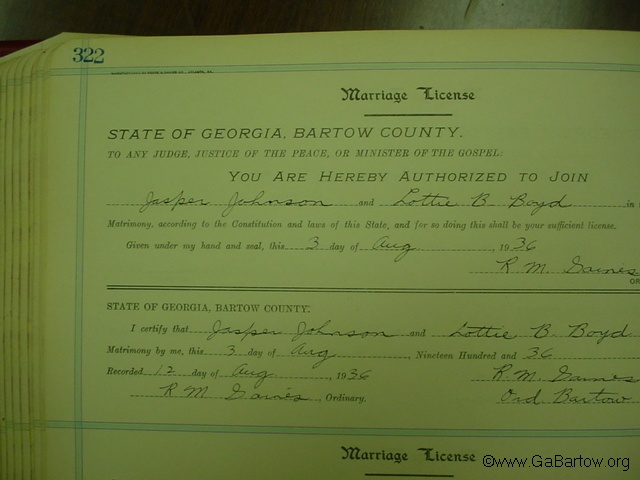 322
Marriage License
STATE OF GEORGIA, BARTOW COUNTY.
TO ANY JUDGE, JUSTICE OF THE PEACE, OR MINISTER OF THE GOSPEL:
YOU ARE HEREBY AUTHORIZED TO JOIN
Jasper Johnson and Lottie B Boyd in
Matrimony, according to the Constitution and laws of this State, and for so doing this shall be your sufficient license.
Given under my hand and seal, this 3 day of Aug, 1936
R M Gaines
OR
STATE OF GEORGIA, BARTOW COUNTY.
I certify that Jasper Johnson and Lottie B Boyd
Matrimony by me, this 3 day of Aug, Nineteen Hundred and 36
Recorded 12 day of Aug, 1936 R. M. Gaines
R M Gaines, Ordinary. Ord Bartow
Marriage License
©www.GaBartow.org